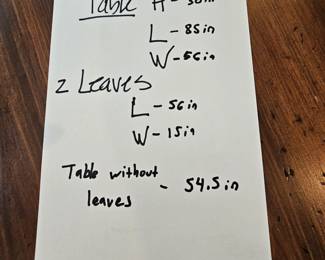 Table H - 30in
L - 85in
W - 56in
2 Leaves
L - 56in
W - 15in
Table without
leaves - 54.5in